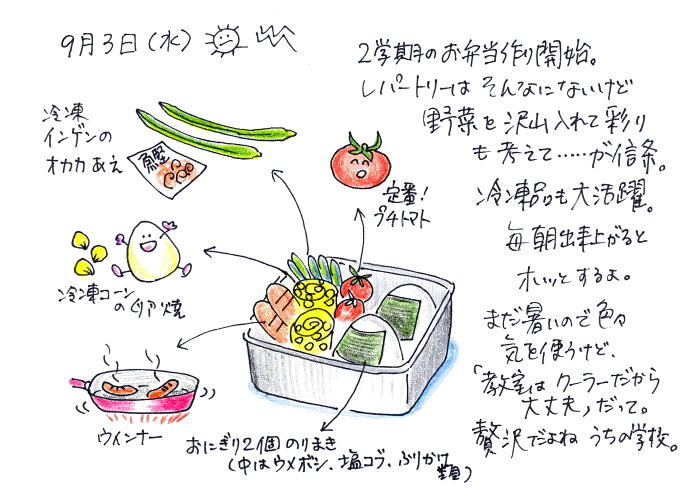 9月3日(水)
2学期のお弁当作り開始。
レパートリーは そんなにないけど
野菜を沢山入れて彩り
も考えて……が信条。
冷凍品も大活躍。
毎朝出来上がると
ホッとするよ。
まだ暑いので色々
気を使うけど、
「教室はクーラーだから
大丈夫」だって。
贅沢だよね うちの学校。
冷凍
インゲンの
オカカあえ
鰹
定番!
プチトマト
冷凍コーン
の 焼
ウインナー
おにぎり2個 のりまき
(中はウメボシ、塩コブ、ふりかけ
類)